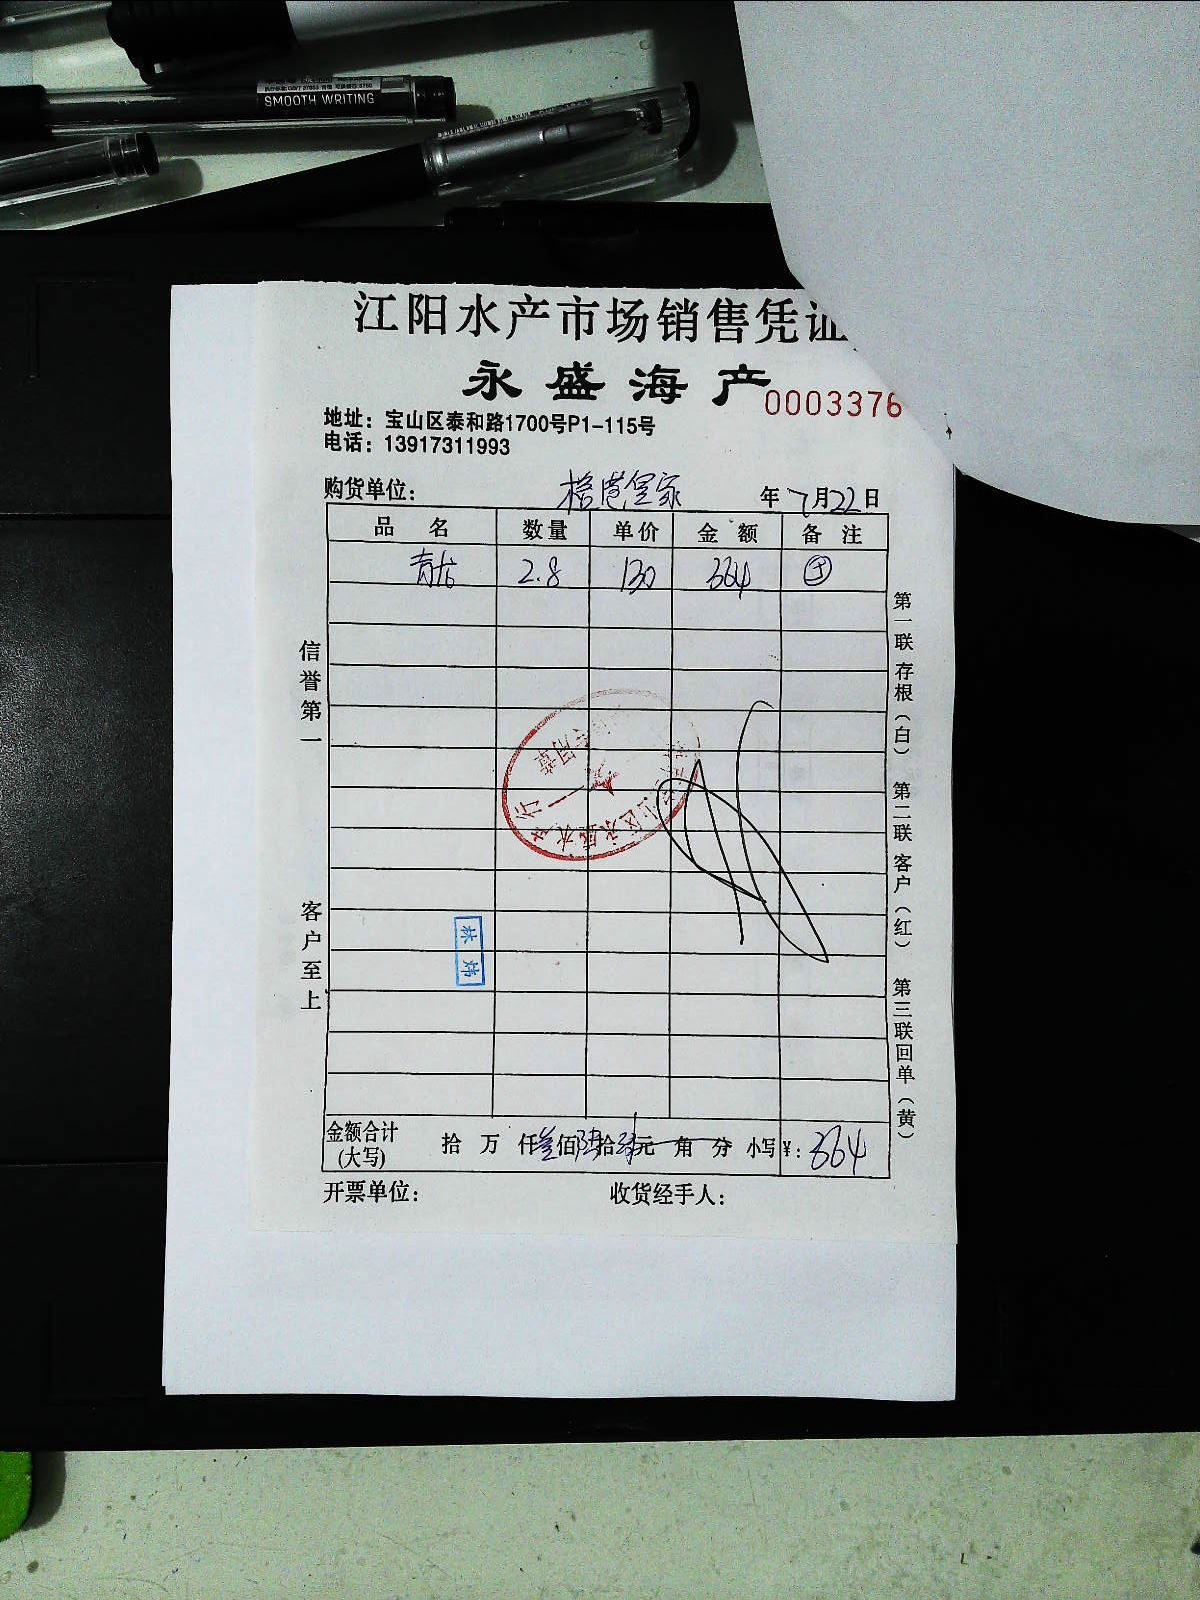 SMOOTH WRITING
江阳水产市场销售凭证
永盛海产
0003376
地址：宝山区泰和路1700号P1-115号
电话：13917311993
购货单位： 年 7月22日
品名 数量 单价 金额 备注
青龙 2.8 130 364
信誉第一
客户至上
第一联 存根（白） 第二联 客户（红） 第三联 回单（黄）
专用章
林炜
金额合计 拾 万 仟叁佰陆拾肆元 角 分 小写￥：364
(大写)
开票单位： 收货经手人：